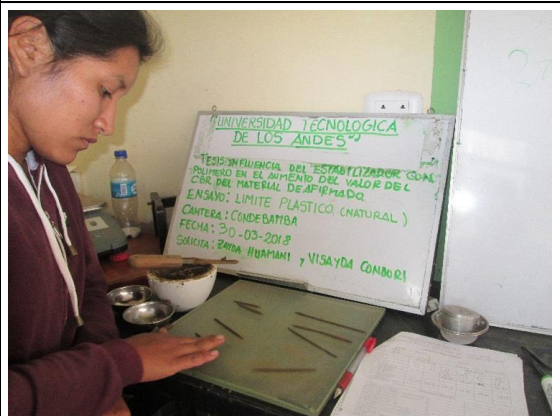 "UNIVERSIDAD TECNOLOGICA
DE LOS ANDES"
TESIS: INFLUENCIA DEL ESTABILIZADOR CON
POLIMERO EN EL AUMENTO DEL VALOR DEL
CBR DEL MATERIAL DE AFIRMADO
ENSAYO: LIMITE PLASTICO (NATURAL)
CANTERA: CONDEBAMBA
FECHA: 30-03-2018
SOLICITA: ZAYDA HUAMANI y VISAYDA CONDORI